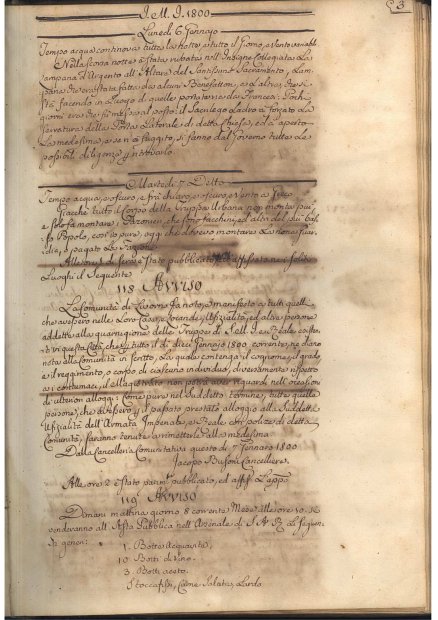 3
I. M. I. 1800
Lunedì 6. Gennajo
Tempo acqua continova tutta la notte, e tutto il Giorno, e Vento variabile
Nella scorsa notte è stata rubata nell'Insigne Collegiata La
Lampana d'Argento all'Altare del Santissimo Sacramento, Lam-
pana stata fatta da alcuni Benefattori, e l'altra
sta facendo in Luogo di quelle portate via da Francesi. Pochi
giorni era che il Sacrilego Ladro à forzato la
serratura della Porta Laterale di detta Chiesa, ed à aperto
La medesima, e se n'è fuggito, si fanno dal Governo tutte Le
possibili diligenze per ritrovarlo.
Martedì 7. Detto
Tempo acqua, e oscuro, e frà chiaro, e oscuro, e Vento a
Giacchè tutto il Corpo della Truppa Urbana non monta più,
e solo fa montare i che sono facchini, ed altri del più bas-
so Popolo, così è pure, oggi che doveva montare La
è pagato Le
Alle ore di sera è stato pubblicato, ed affisso nei soliti
Luoghi il Seguente
118. Avviso
La Comunità di Livorno fa noto, e manifesto a tutti quelli
che avessero nelle Loro Case, e Locande, Ufizialità, ed altre persone
addette alla guarnigione delle Truppe di S. M. I. e Reale esisten-
ti in questa Città, che per tutto il dì dieci Gennajo 1800. corrente, ne diano
nota alla Comunità in scritto, La quale contenga il cognome, il grado
e il reggimento, o corpo di ciascuno individuo, diversamente rispetto
ai contumaci, il Magistrato non potrà aver riguardi nell'occasione
di ulteriori alloggi. Come pure nel suddetto termine, tutte quelle
persone, che avessero per il passato prestato alloggio alla suddetta
Ufizialità dell'Armata Imperiale, e Reale con polizze di detta
Comunità, saranno tenute a rimetterle alla medesima
Dalla Cancelleria Comunitativa questo dì 7. Gennajo 1800
Jacopo Cancelliere
Alle ore 2 è stato parim. pubblicato, ed affisso
119. Avviso
Domani mattina giorno 8 corrente Mese alle ore 10. si
venderanno all'Asta Pubblica nell'Arsenale di S. A. R. Le seguen-
ti generi:
1. Botte Acquavite,
10 Botti di Vino
3. Botti aceto
Stoccafissi, Carne Salata, Lardo